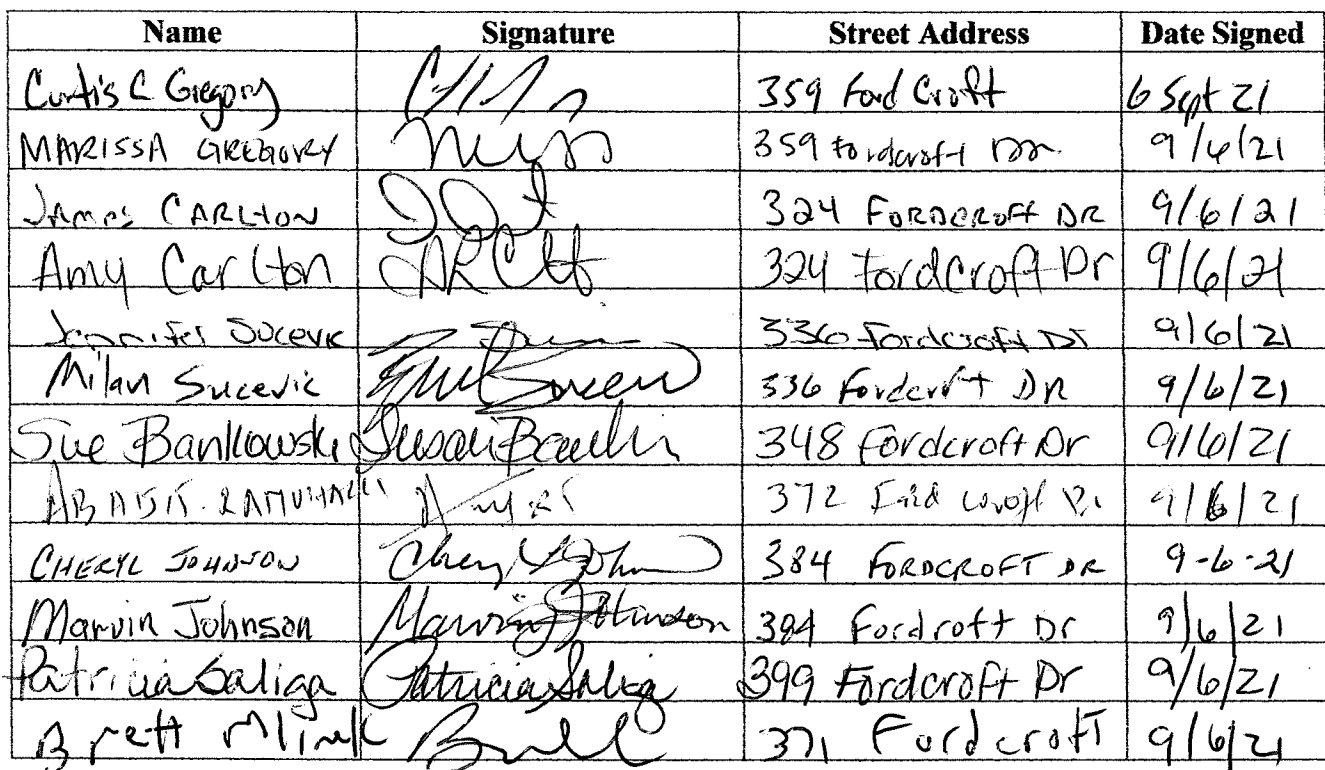 Name Signature Street Address Date Signed
Curtis C Gregory 359 Ford Croft 6 Sept 21
MARISSA GREGORY 359 Fordcroft Dr. 9/6/21
JAMES CARLTON 324 FORDCROFT DR 9/6/21
Amy Carlton 324 Fordcroft Dr 9/6/21
Jennifer Sucevic 336 Fordcroft Dr 9/6/21
Milan Sucevic 336 Fordcroft DR 9/6/21
Sue Bankowski Susan 348 Fordcroft Dr 9/6/21
372 Ford croft Dr 9/6/21
CHERYL JOHNSON Cheryl 384 FORDCROFT DR 9-6-21
Marvin Johnson Marvin Johnson 384 Fordcroft Dr 9/6/21
Patricia Saliga Patricia Saliga 399 Fordcroft Dr 9/6/21
Brett Mlinek 371 Fordcroft 9/6/21